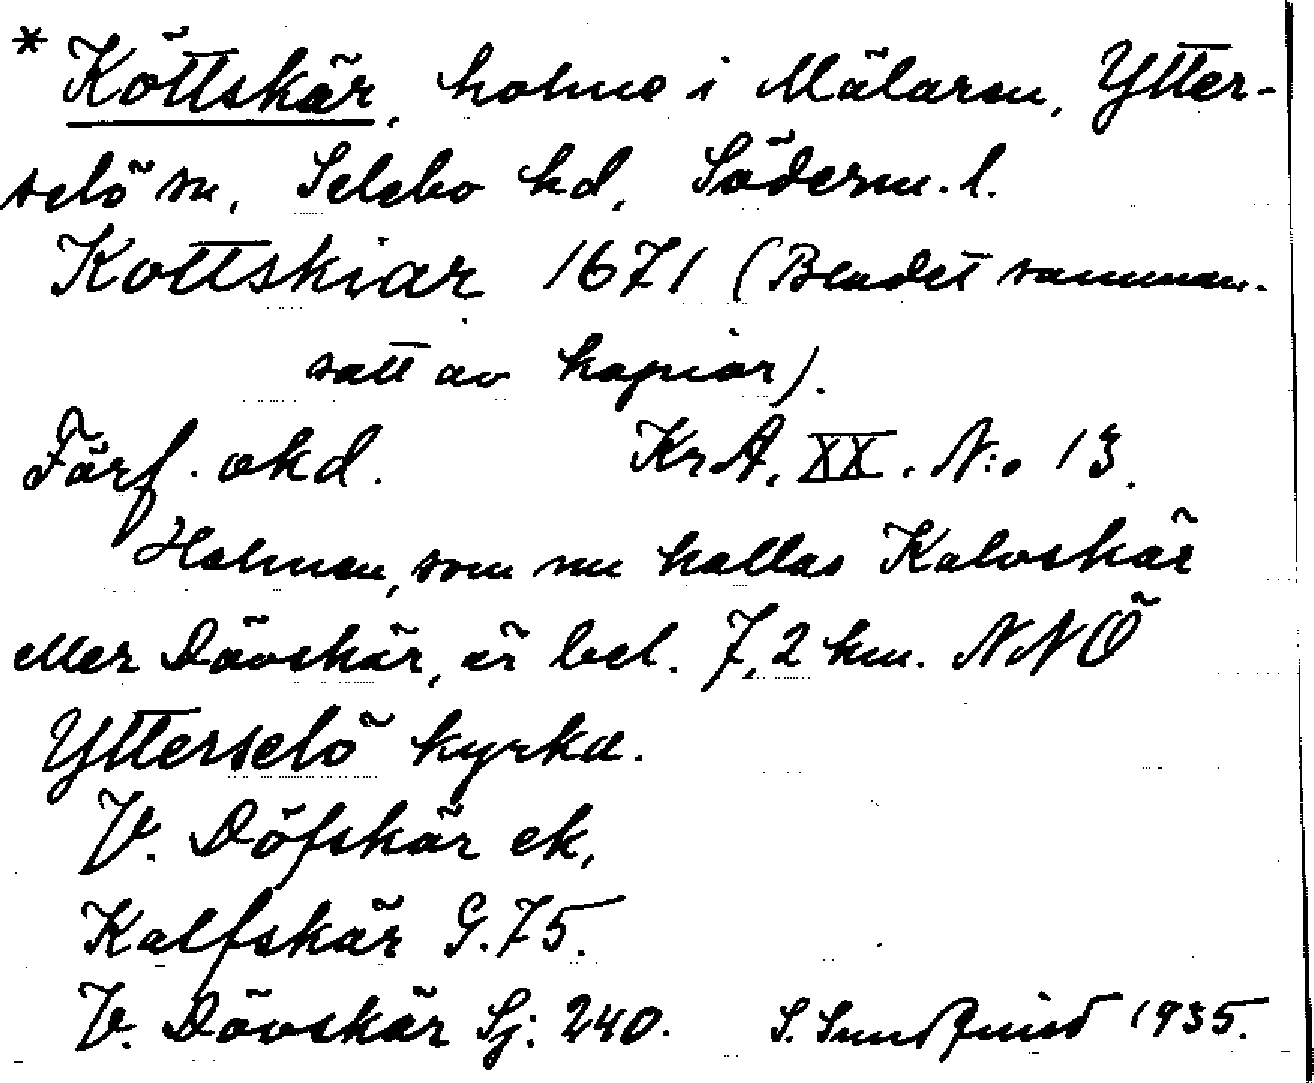 * Köttskär, holme i Mälaren, Ytter-
selö sn, Selebo hd, Söderm. l.
Kottskiar 1671 (Bladet samman-
satt av kopior).
Förf. okd. KrA. XX. N:o 13.
Holmen, som nu kallas Kalvskär
eller Dövskär, är bel. 7,2 km. NNÖ
Ytterselö kyrka.
V. Döfskär ek,
Kalfskär G. 75.
V. Dövskär Sj: 240. S. Sundquist 1935.